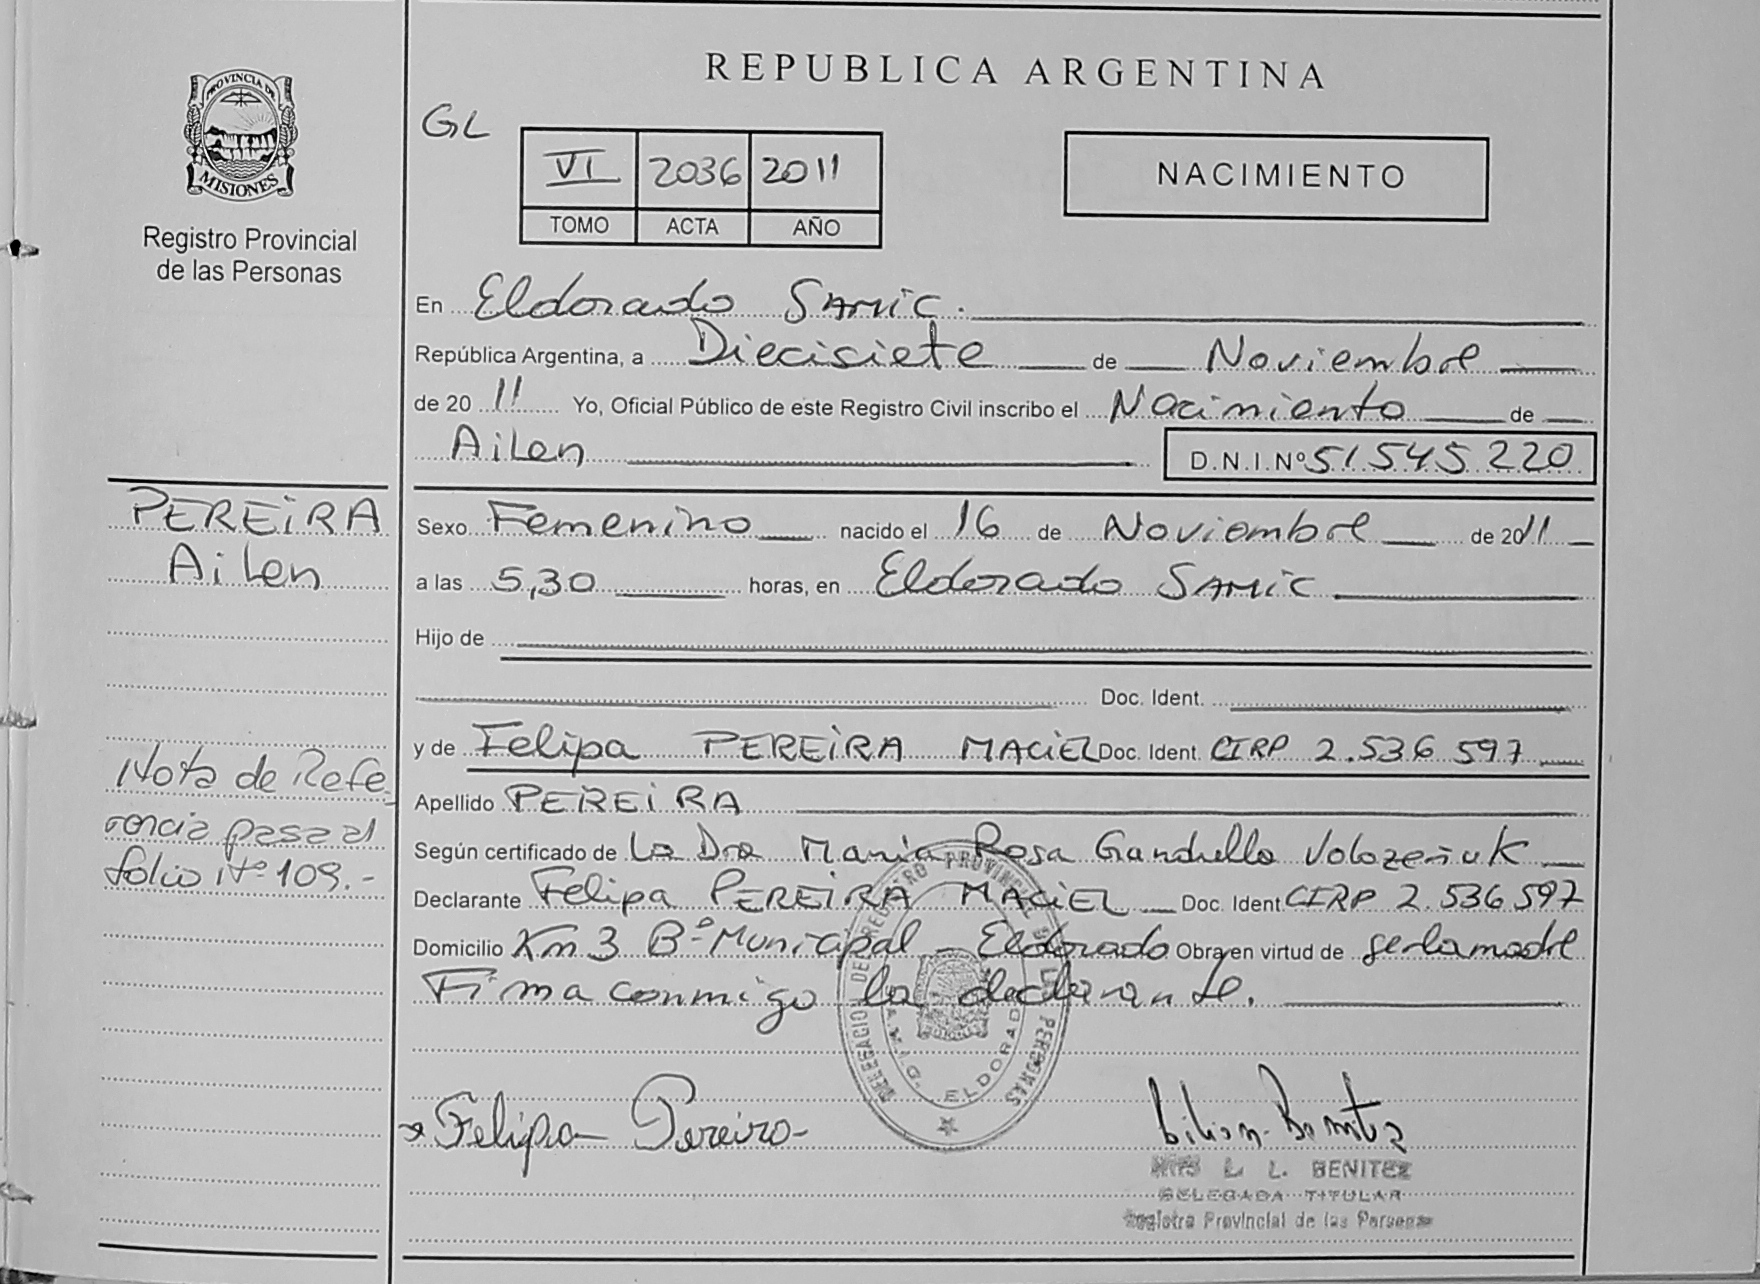 PROVINCIA DE
MISIONES
Registro Provincial
de las Personas
REPUBLICA ARGENTINA
GL
VI 2036 2011
TOMO ACTA AÑO
NACIMIENTO
En Eldorado SAMIC.
República Argentina, a Diecisiete de Noviembre
de 20 11 Yo, Oficial Público de este Registro Civil inscribo el Nacimiento de
Ailen D.N.I.Nº 51.545.220
PEREIRA
Ailen
Sexo Femenino nacido el 16 de Noviembre de 2011
a las 5,30 horas, en Eldorado SAMIC
Hijo de
Doc. Ident.
y de Felipa PEREIRA MACIEL Doc. Ident. CIRP 2.536.597
Nota de Refe
rencia pasa al
folio Nº 109.-
Apellido PEREIRA
Según certificado de La Dra Maria Rosa
Declarante Felipa PEREIRA MACIEL Doc. Ident CIRP 2.536.597
Domicilio Km 3 Bº Municipal - Eldorado Obra en virtud de ser la madre
Firma conmigo la declarante.
DELEGACION DEL REGISTRO PROVINCIAL DE LAS PERSONAS
ELDORADO
Felipa Pereira
L. L. BENITEZ
DELEGADA TITULAR
Registro Provincial de las Personas